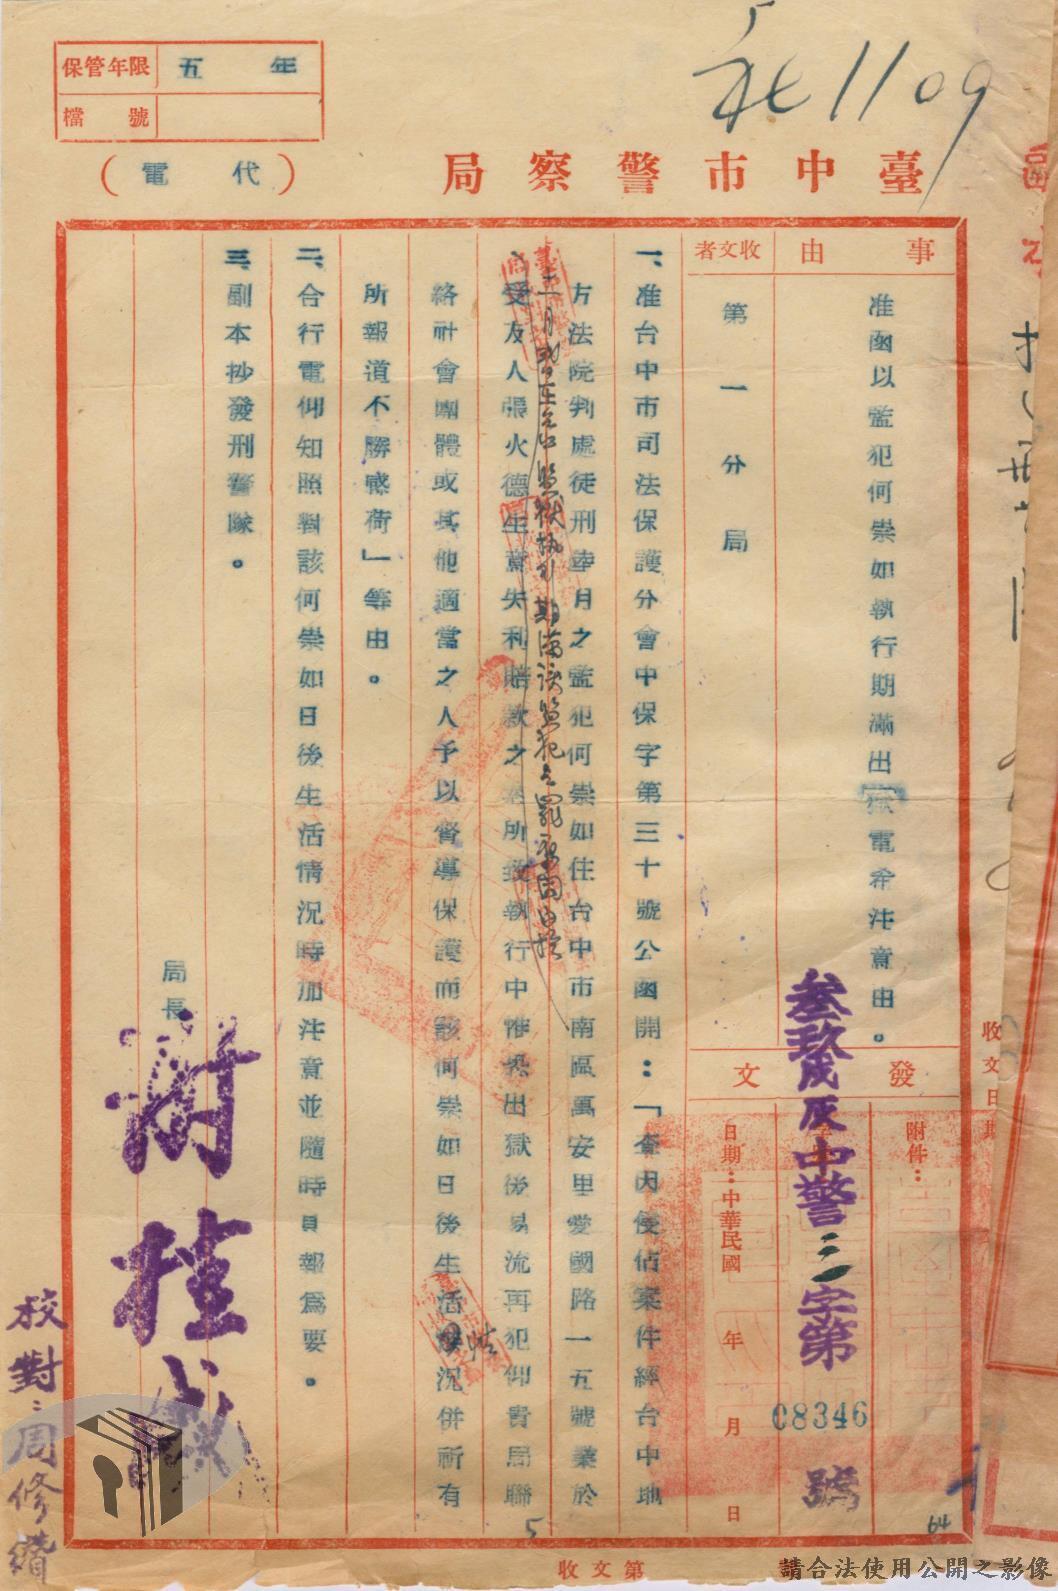 保管年限 五年
檔號
臺中市警察局
(代電)
事由
准函以監犯何崇如執行期滿出獄電希注意由。
收文者
第一分局
發文
附件：
叁玖戌灰中警三字第08346號
日期：中華民國 年 月 日
一、准台中市司法保護分會中保字第三十號公函開：「查因侵佔案件經台中地
方法院判處徒刑陸月之監犯何崇如住台中市南區萬安里愛國路一五號業於
十一月 在台中監獄執行期滿該監犯之罪原因由於
受友人張火德生意失利賠款之累所致執行中惟恐出獄後易流再犯仰貴局聯
絡社會團體或其他適當之人予以督導保護而該何崇如日後生活狀況併祈有
所報道不勝感荷」等由。
二、合行電仰知照對該何崇如日後生活情況時加注意並隨時具報為要。
三、副本抄發刑警隊。
局長
校對：周修
64
5
收文日期
收文第
請合法使用公開之影像